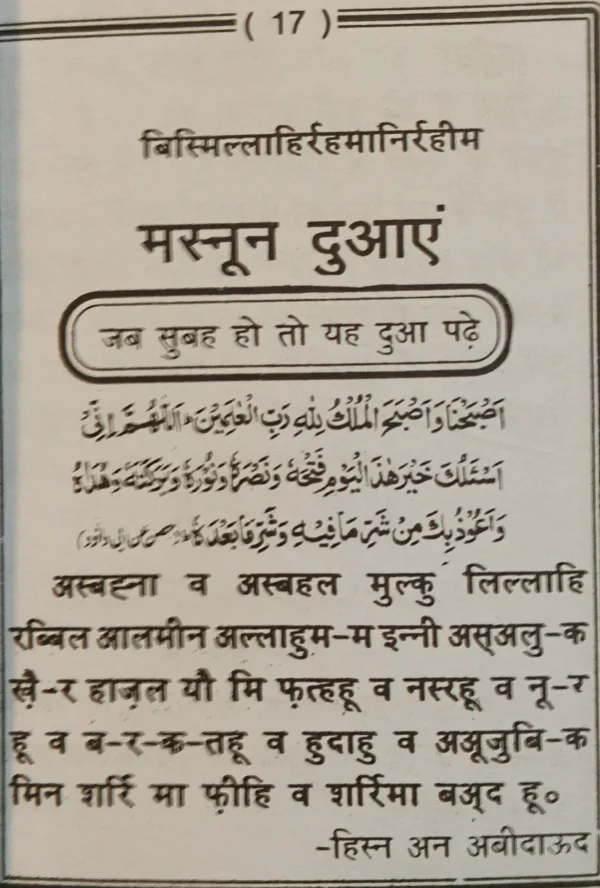 ( 17 )
बिस्मिल्लाहिर्रहमानिर्रहीम
मस्नून दुआएं
जब सुबह हो तो यह दुआ पढ़े
اَصْبَحْنَا وَاَصْبَحَ الْمُلْكُ لِلّٰهِ رَبِّ الْعٰلَمِيْنَ ۔ اَللّٰهُمَّ اِنِّىْ
اَسْئَلُكَ خَيْرَ هٰذَا الْيَوْمِ فَتْحَهٗ وَنَصْرَهٗ وَنُوْرَهٗ وَبَرَكَتَهٗ وَهُدَاهُ
وَاَعُوْذُ بِكَ مِنْ شَرِّ مَا فِيْهِ وَشَرِّ مَا بَعْدَهٗ ۔ (حصن عن ابی داؤد)
अस्बह्ना व अस्बहल मुल्कु लिल्लाहि
रब्बिल आलमीन अल्लाहुम-म इन्नी अस्अलु-क
ख़ै-र हाज़ल यौ मि फ़त्हहू व नस्रहू व नू-र
हू व ब-र-क-तहू व हुदाहु व अऊजुबि-क
मिन शर्रि मा फ़ीहि व शर्रिमा बअ्द हू॰
-हिस्न अन अबीदाऊद